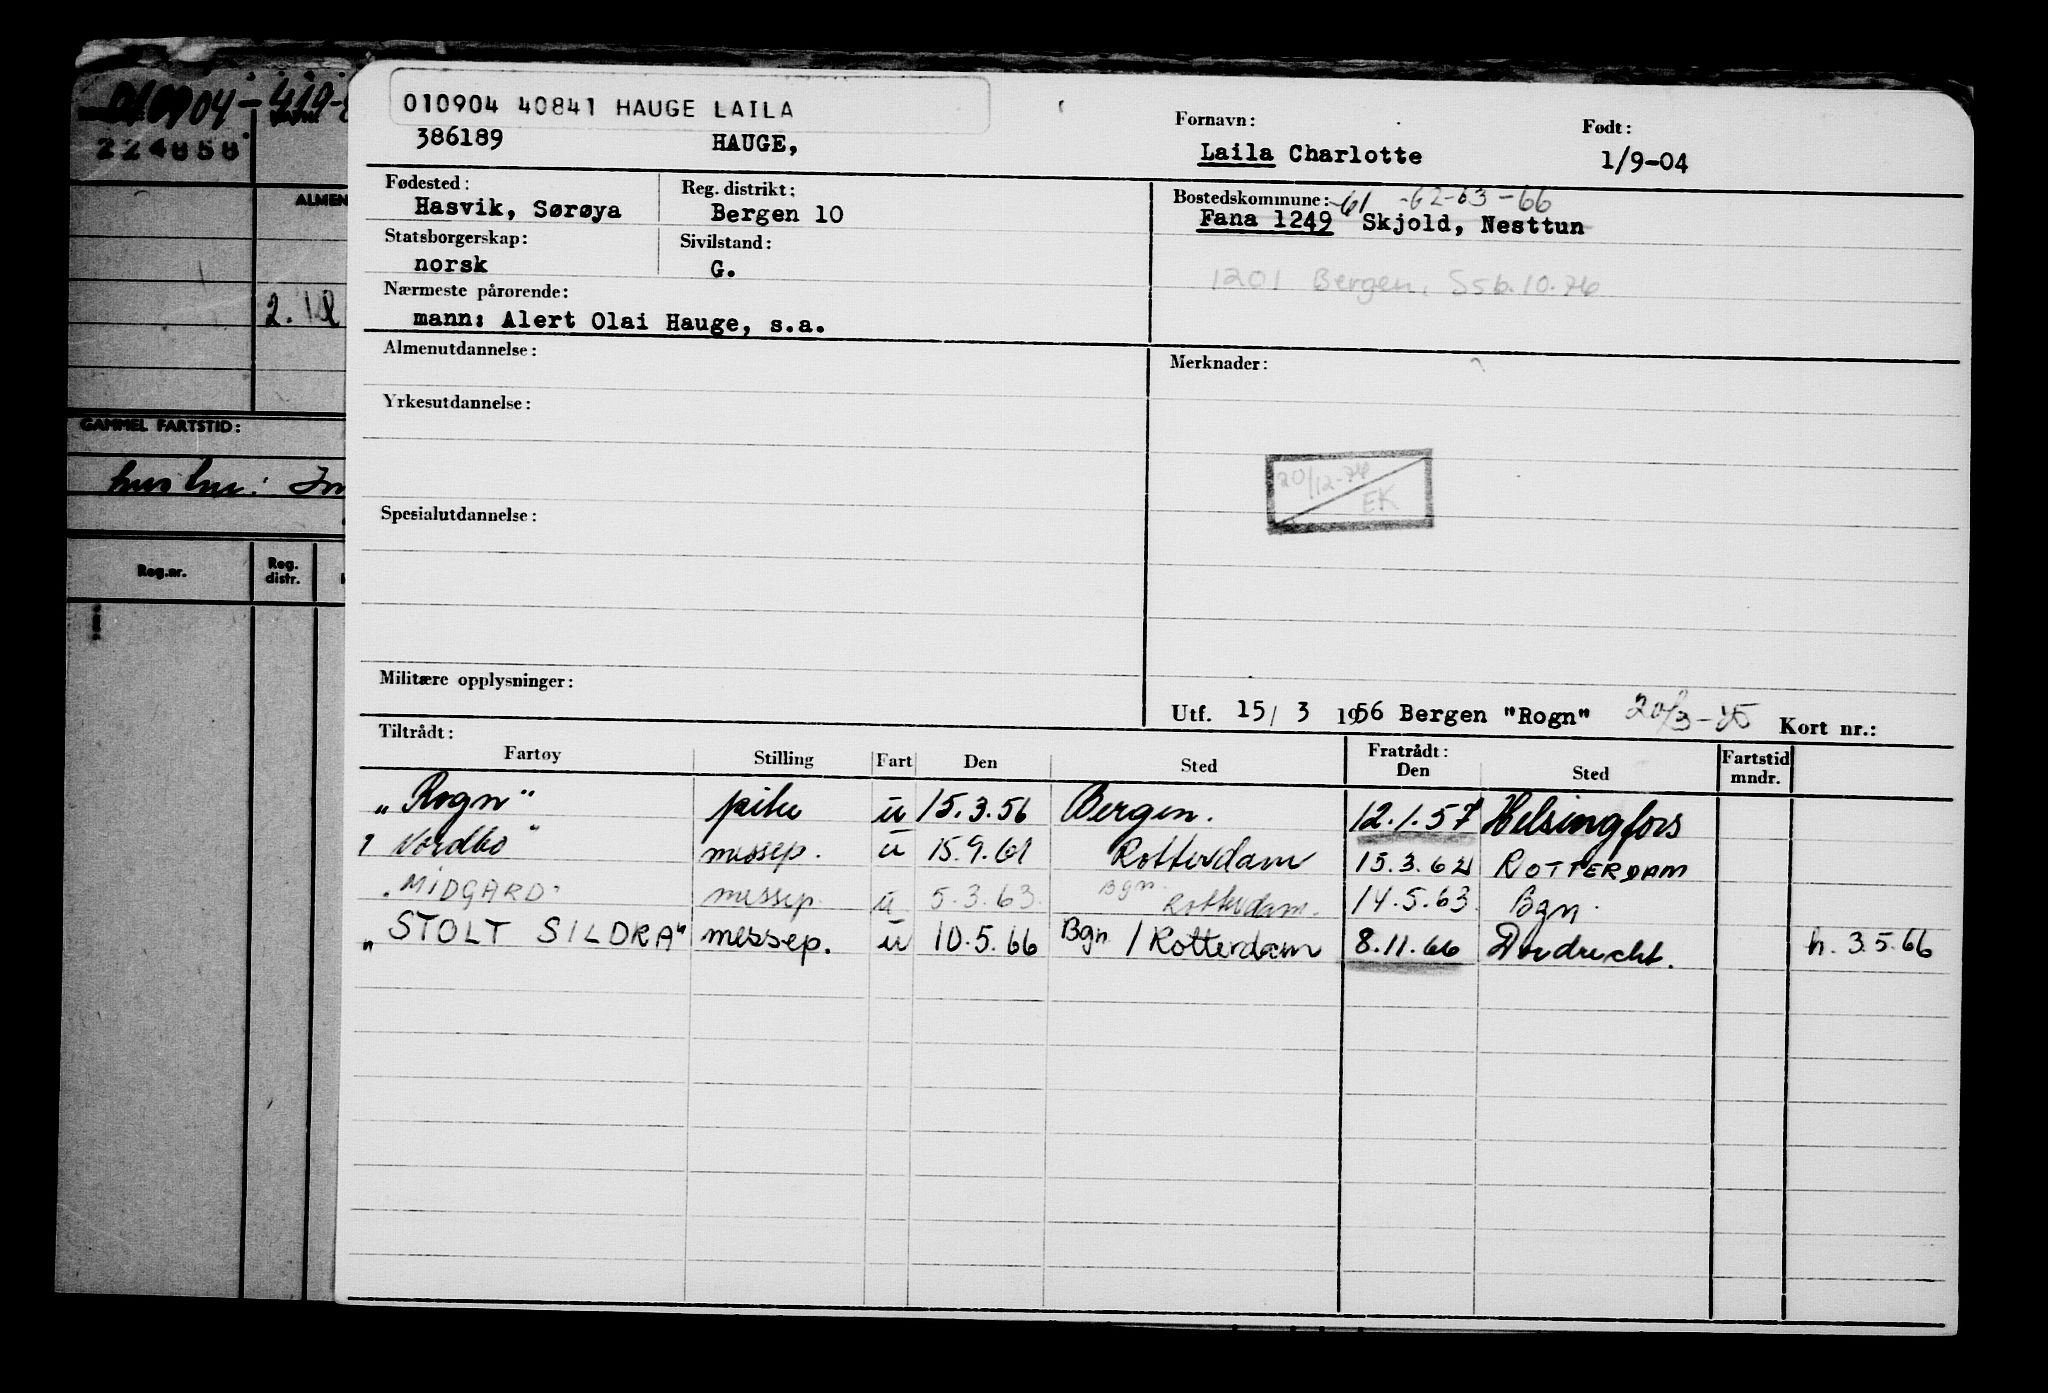 010904-419-
224858
ALMEN
2.
GAMMEL FARTSTID:
Reg.nr.
Reg. distr.
010904 40841 HAUGE LAILA
386189 HAUGE,
Fornavn: Født:
Laila Charlotte 1/9-04
Fødested: Reg. distrikt: Bostedskommune: -61 -62-63-66
Hasvik, Sørøya Bergen 10 Fana 1249 Skjold, Nesttun
Statsborgerskap: Sivilstand:
norsk G.
1201 Bergen. Ssb.10.76
Nærmeste pårørende:
mann: Alert Olai Hauge, s.a.
Almenutdannelse: Merknader:
Yrkesutdannelse:
20/12-76 EK
Spesialutdannelse:
Militære opplysninger:
Utf. 15/ 3 1956 Bergen "Rogn" Kort nr.:
Tiltrådt: Fratrådt:
Fartøy Stilling Fart Den Sted Den Sted Fartstid mndr.
"Rogn" pike u 15.3.56 Bergen. 12.1.57 Helsingfors
Nordbo" messep. u 15.9.61 Rotterdam 15.3.62 ROTTERDAM
"MIDGARD" messep u 5.3.63 Bgn. Rotterdam. 14.5.63 Bgn.
"STOLT SILDRA" messep. u 10.5.66 Bgn / Rotterdam 8.11.66 Dordrecht. h. 3.5.66